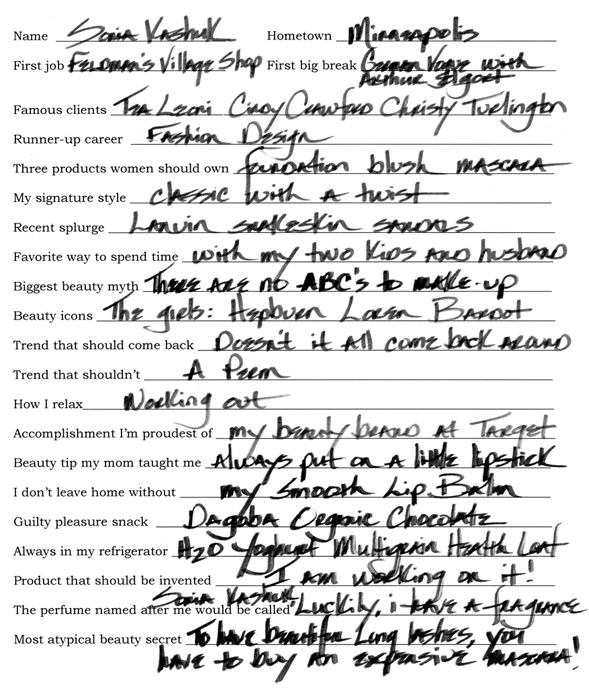 Name Sonia Kashuk Hometown Minneapolis
First job Feldman's Village Shop First big break German Vogue with
Arthur Elgort
Famous clients Tea Leoni Cindy Crawford Christy Turlington
Runner-up career Fashion Design
Three products women should own foundation blush mascara
My signature style classic with a twist
Recent splurge Lanvin snakeskin sandals
Favorite way to spend time with my two kids and husband
Biggest beauty myth There are no ABC's to make-up
Beauty icons The girls: Hepburn Loren Bardot
Trend that should come back Doesn't it all come back around
Trend that shouldn't A Perm
How I relax Working out
Accomplishment I'm proudest of my beauty brand at Target
Beauty tip my mom taught me Always put on a little lipstick
I don't leave home without my Smooth Lip Balm
Guilty pleasure snack Dagoba Organic Chocolate
Always in my refrigerator H2O Yoghurt Multigrain Health Loaf
Product that should be invented I am working on it!
Sonia Kashuk
The perfume named after me would be called Luckily, i have a fragrance
Most atypical beauty secret To have beautiful Long lashes, you
have to buy an expensive mascara!